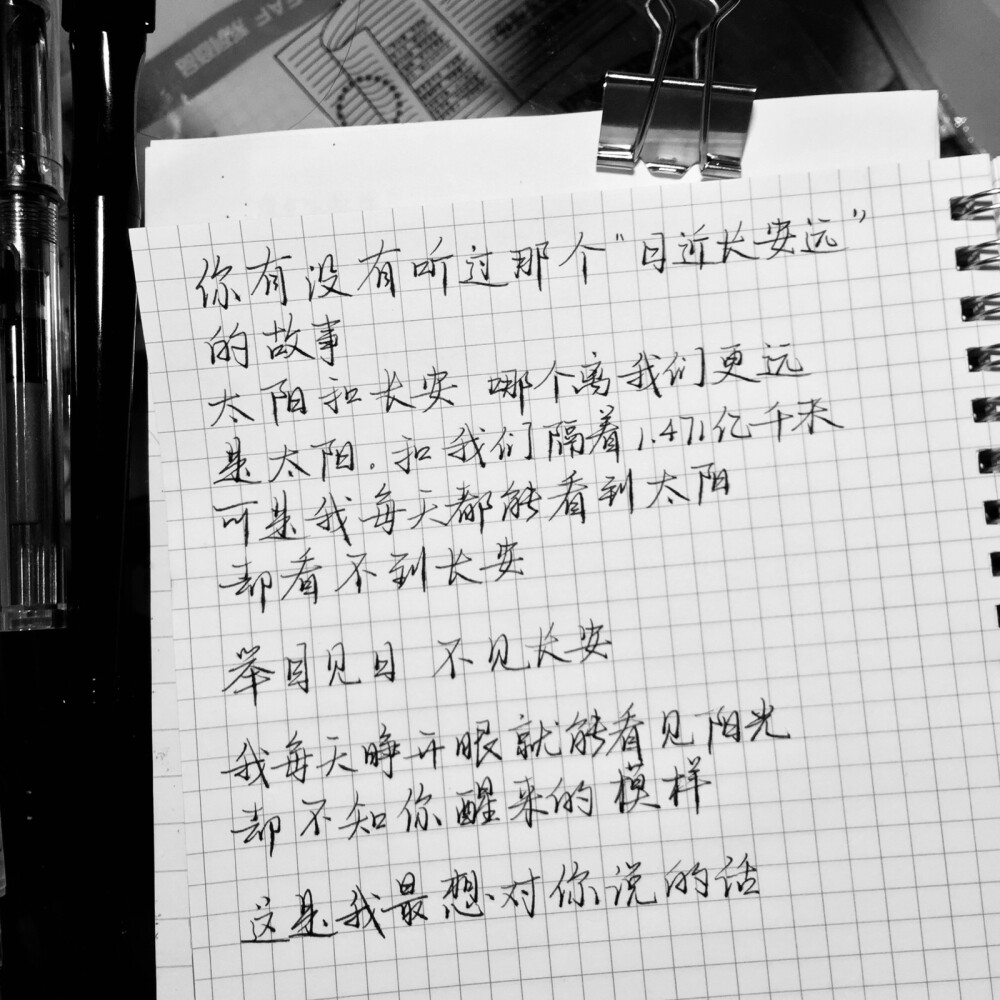 你有没有听过那个“日近长安远”
的故事
太阳和长安 哪个离我们更远
是太阳。和我们隔着1.471亿千米
可是我每天都能看到太阳
却看不到长安
举目见日 不见长安
我每天睁开眼就能看见阳光
却不知你醒来的模样
这是我最想对你说的话